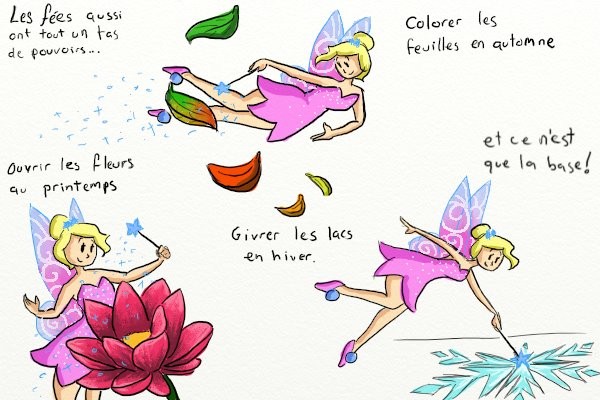 Les fées aussi
ont tout un tas
de pouvoirs...
Colorer les
feuilles en automne
Ouvrir les fleurs
au printemps
Givrer les lacs
en hiver.
et ce n'est
que la base!